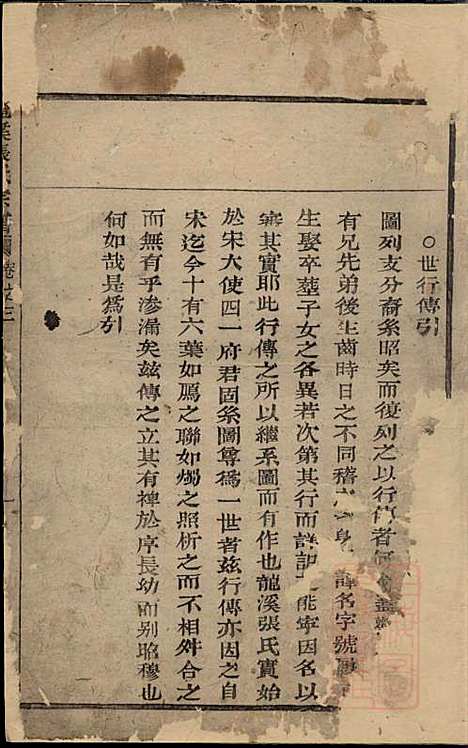 ○世行傳引
圖列支分裔系昭矣而復列之以行傳者何
有兄先弟後生齒時日之不同稽 諱名字號
生娶卒塟子女之各異若次第其行而詳記 能寧因名以
審其實耶此行傳之所以繼系圖而有作也龍溪張氏實始
於宋大使四一府君固系圖尊爲一世者兹行傳亦因之自
宋迄今十有六葉如鴈之聯如燭之照析之而不相舛合之
而無有乎滲漏矣兹傳之立其有裨於序長幼而别昭穆也
何如哉是爲引
溪張氏宗 圖 卷之三
一